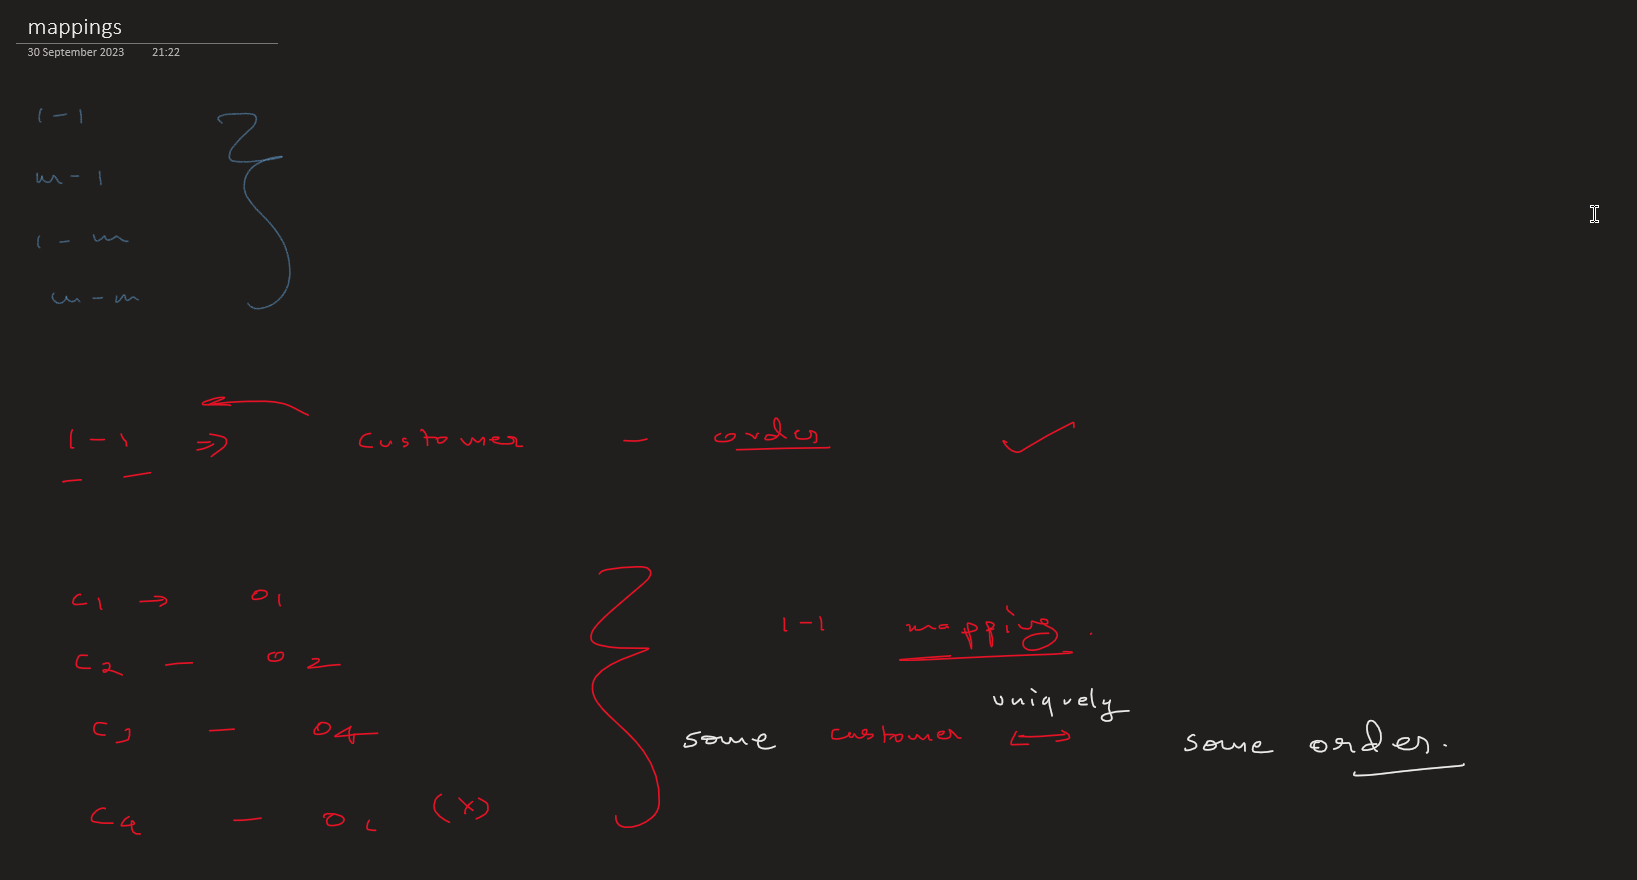 mappings
30 September 2023 21:22
1 - 1
m - 1
1 - m
m - m
1 - 1 ⇒ customer - order ✓
c1 → o1
c2 - o2
c3 - o4
c4 - o1 (x)
1-1 mapping.
uniquely
some customer ↔ some order.